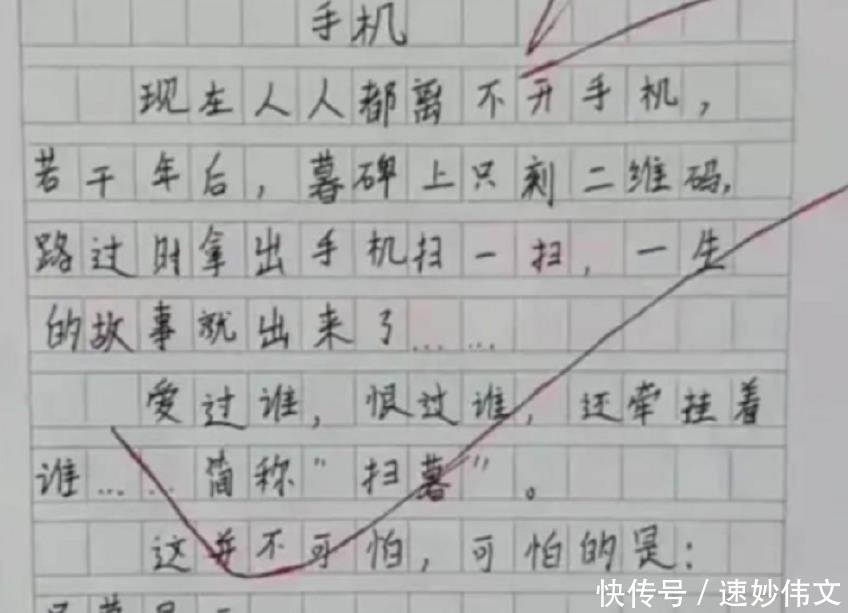 手机
现在人人都离不开手机，
若干年后，暮碑上只刻二维码，
路过时拿出手机扫一扫，一生
的故事就出来了……
爱过谁，恨过谁，还牵挂着
谁……简称“扫暮”。
这并不可怕，可怕的是：
快传号／速妙伟文